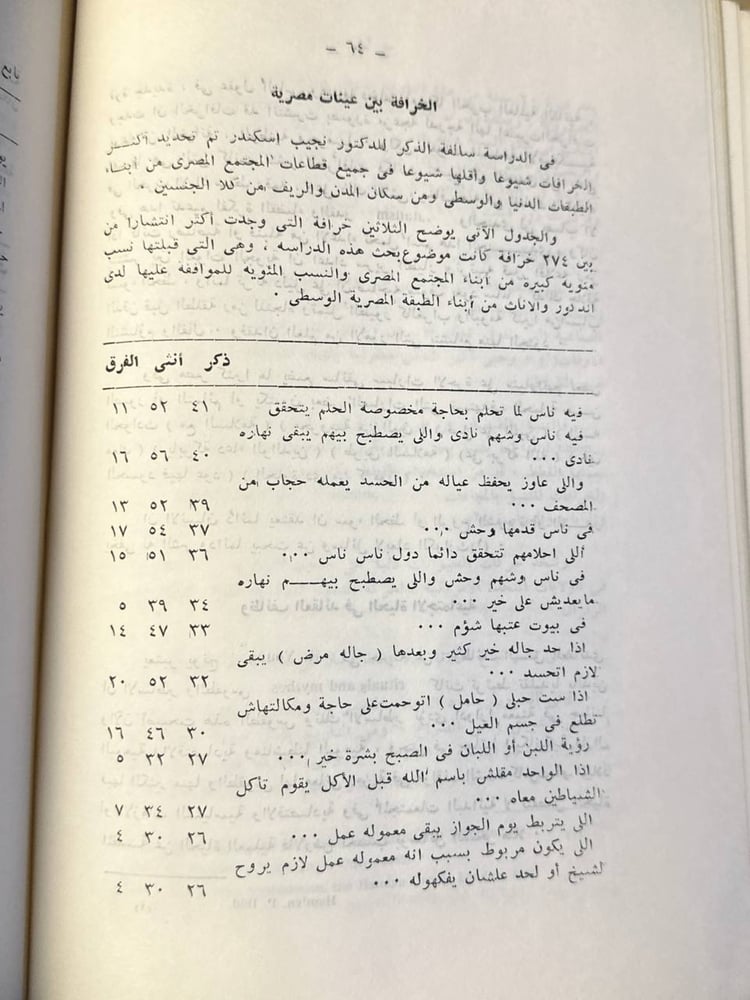 - ٦٤ -
الخرافة بين عينات مصرية
فى الدراسة سالفة الذكر للدكتور نجيب اسكندر تم تحديد أكثر
الخرافات شيوعا وأقلها شيوعا فى جميع قطاعات المجتمع المصرى من أبناء
الطبقات الدنيا والوسطى ومن سكان المدن والريف من كلا الجنسين .
والجدول الآتى يوضح الثلاثين خرافة التى وجدت أكثر انتشارا من
بين ٢٧٤ خرافة كانت موضوع بحث هذه الدراسه ، وهى التى قبلتها نسب
مئوية كبيرة من أبناء المجتمع المصرى والنسب المئويه للموافقه عليها لدى
الذكور والاناث من أبناء الطبقة المصرية الوسطى .
ذكر أنثى الفرق
فيه ناس لما تحلم بحاجة مخصوصة الحلم يتحقق ٤١ ٥٢ ١١
فيه ناس وشهم نادى واللى يصطبح بيهم يبقى نهاره
نادى ... ٤٠ ٥٦ ١٦
واللى عاوز يحفظ عياله من الحسد يعمله حجاب من
المصحف ... ٣٩ ٥٢ ١٣
فى ناس قدمها وحش ... ٣٧ ٥٤ ١٧
اللى احلامهم تتحقق دائما دول ناس ناس ... ٣٦ ٥١ ١٥
فى ناس وشهم وحش واللى يصطبح بيهـــم نهاره
مايعديش على خير ... ٣٤ ٣٩ ٥
فى بيوت عتبها شؤم ... ٣٣ ٤٧ ١٤
اذا حد جاله خير كثير وبعدها ( جاله مرض ) يبقى
لازم اتحسد ... ٣٢ ٥٢ ٢٠
اذا ست حبلى ( حامل ) اتوحمت على حاجة ومكالتهاش
تطلع فى جسم العيل ... ٣٠ ٤٦ ١٦
رؤية اللبن أو اللبان فى الصبح بشرة خير ... ٢٧ ٣٢ ٥
اذا الواحد مقلش باسم الله قبل الأكل يقوم تأكل
الشياطين معاه ... ٢٧ ٣٤ ٧
اللى يتربط يوم الجواز يبقى معموله عمل ... ٢٦ ٣٠ ٤
اللى يكون مربوط بسبب انه معموله عمل لازم يروح
لشيخ أو لحد علشان يفكهوله ... ٢٦ ٣٠ ٤